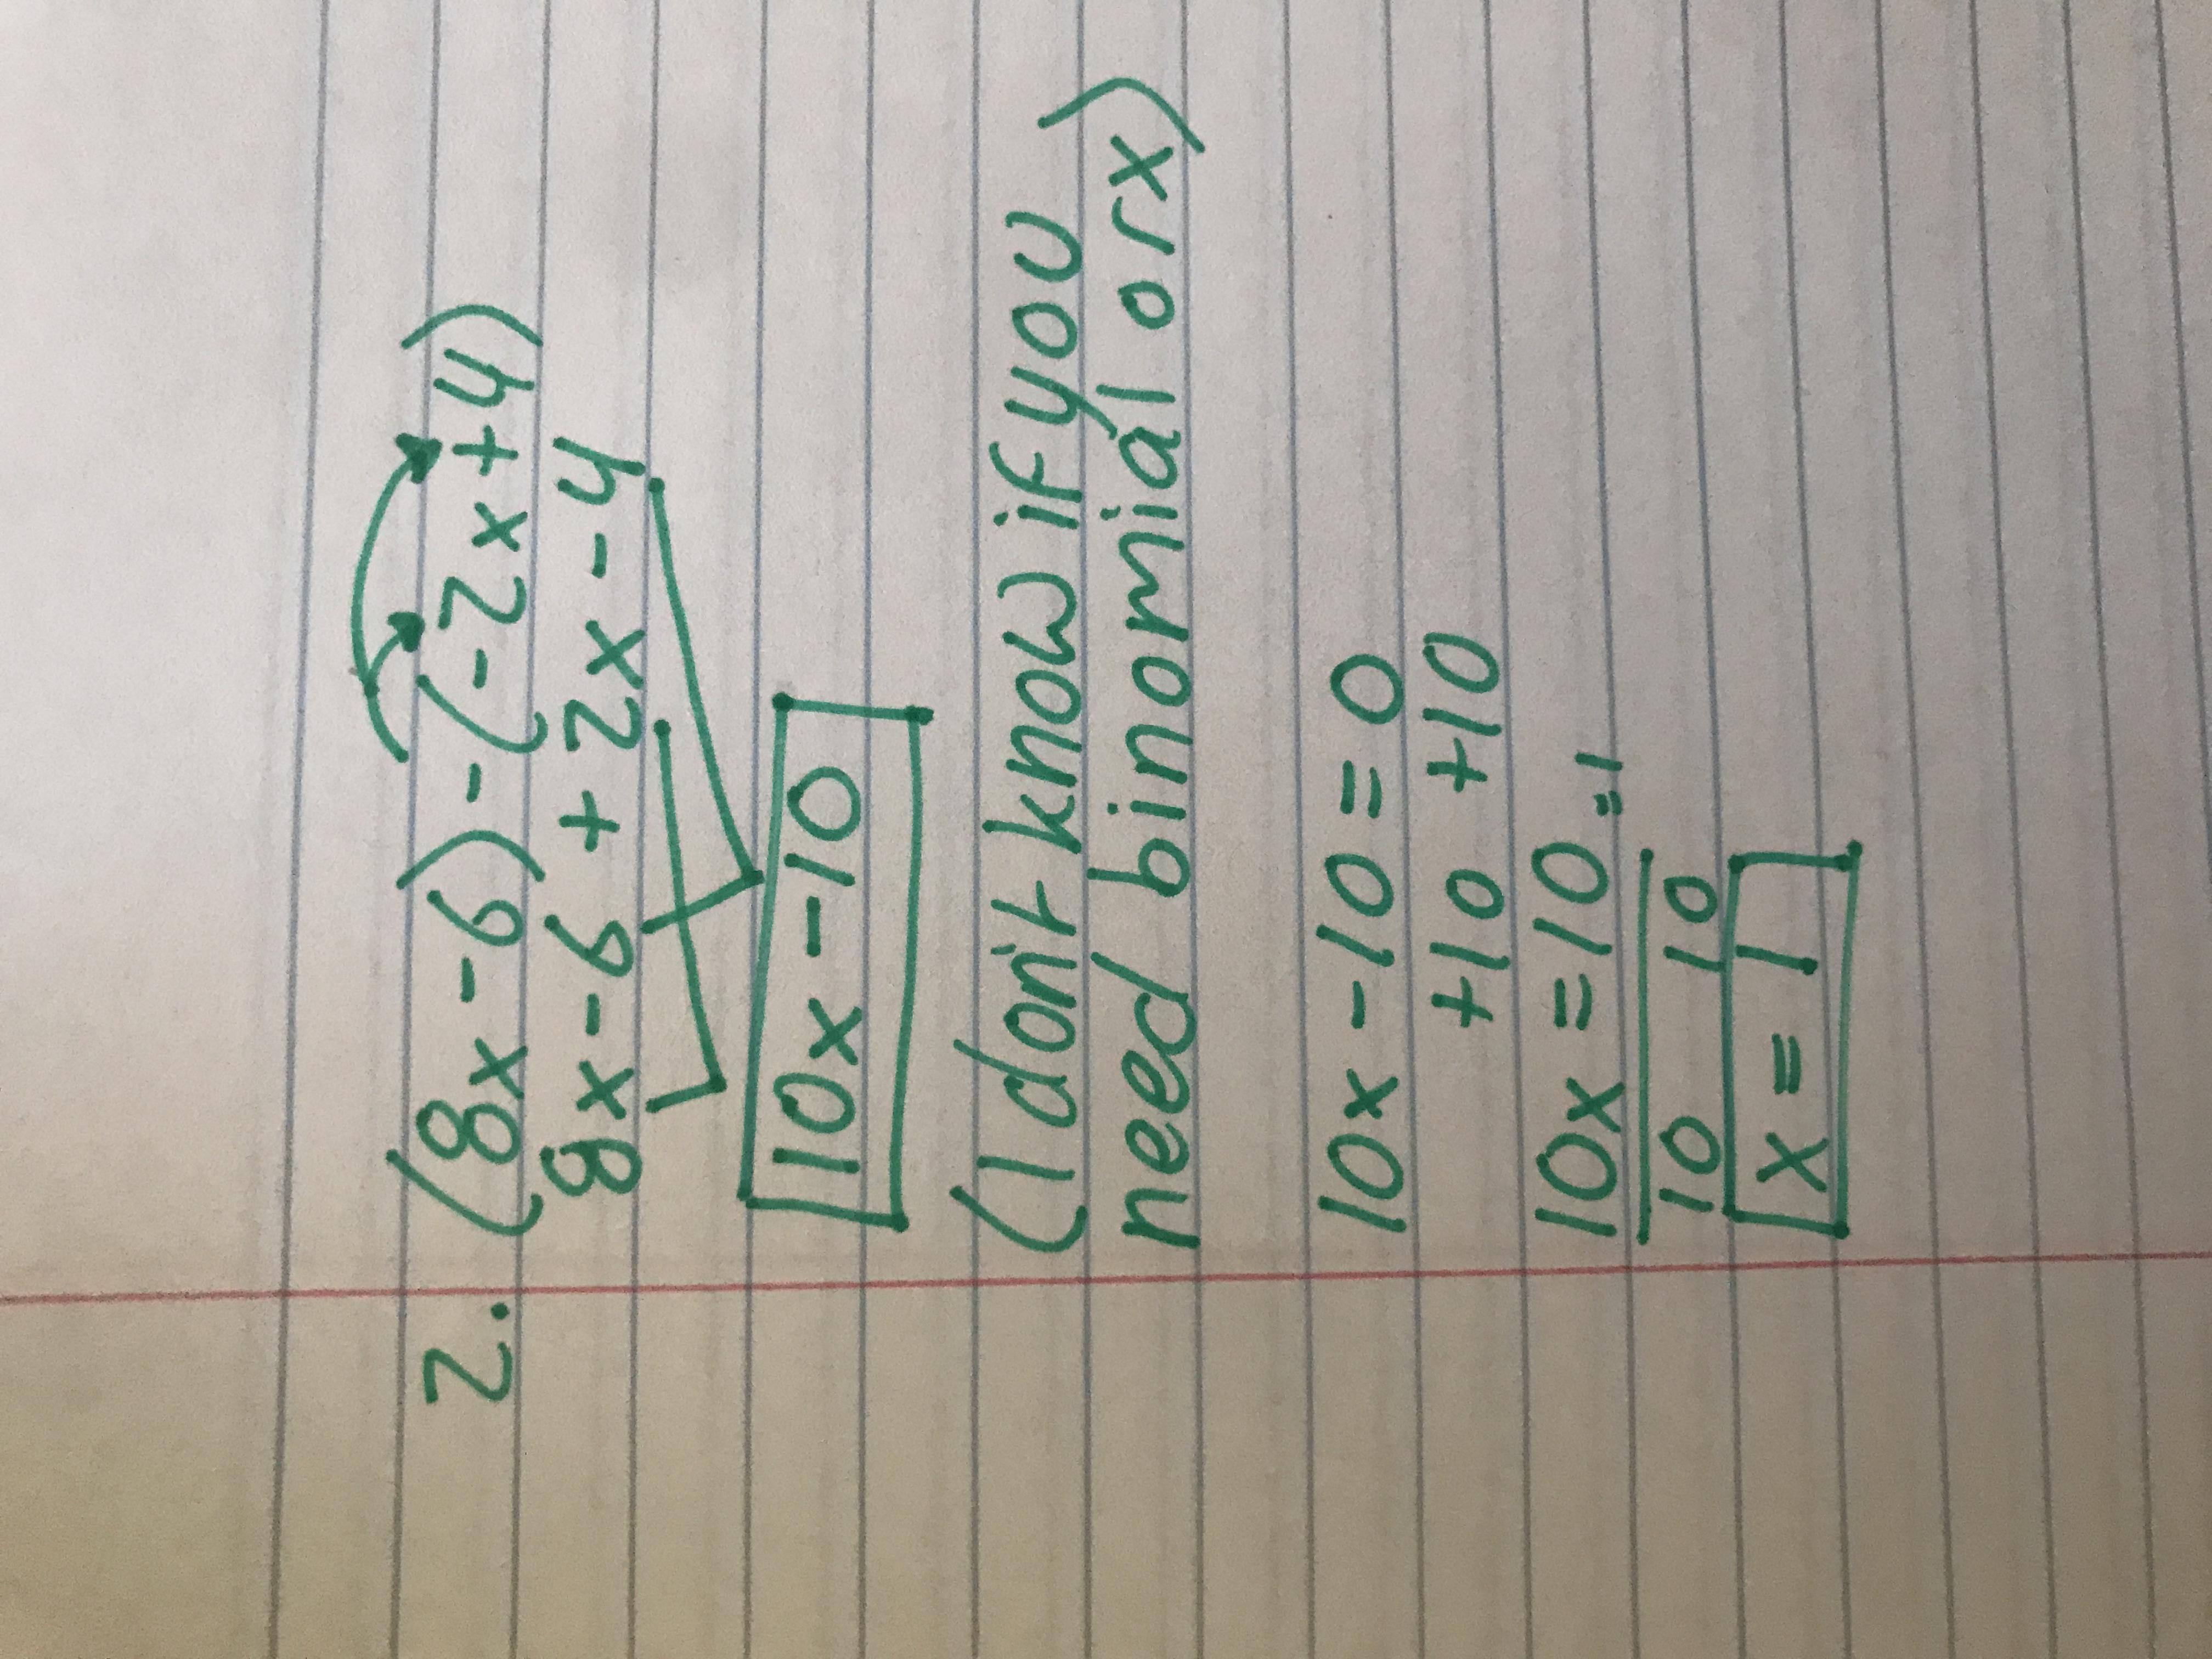 2. (8x - 6) - (-2x + 4)
8x - 6 + 2x - 4
10x - 10
(I don't know if you
need binomial or x)
10x - 10 = 0
+10 +10
10x = 10 = 1
10 10
x = 1